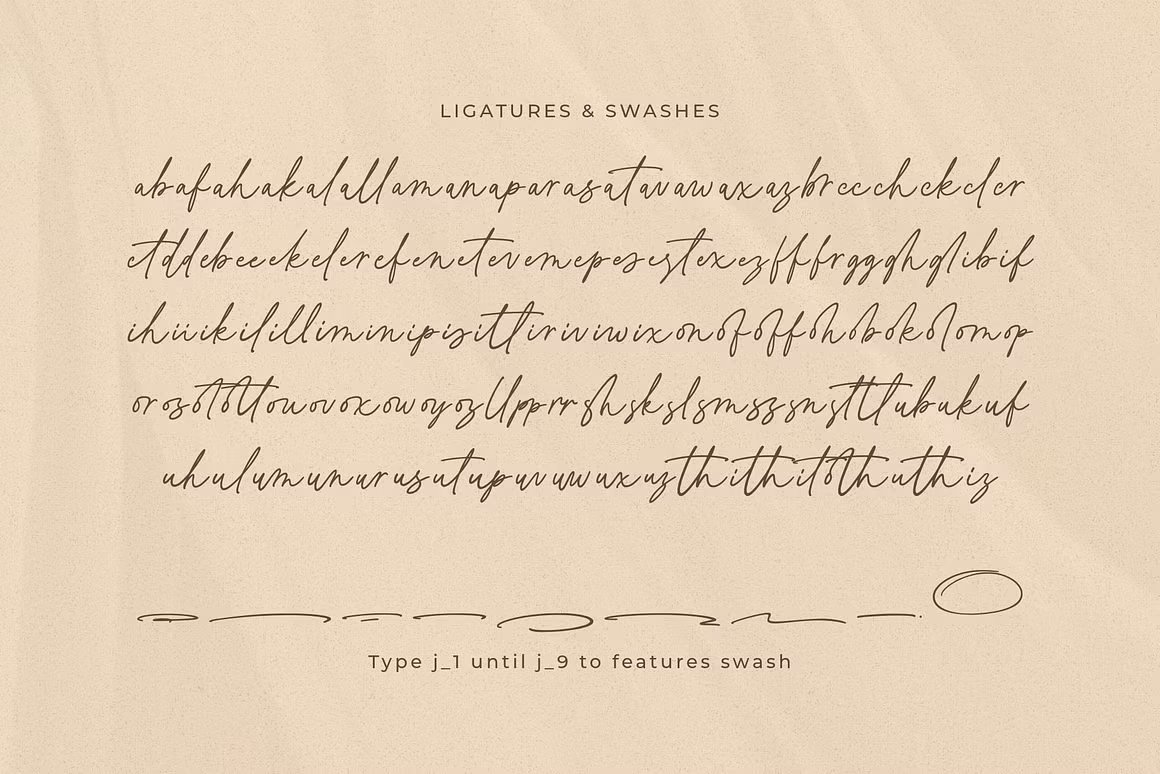 LIGATURES & SWASHES
abafahakalallamanaparasatavawaxazbrccchckclcr
ctddebeeekelerefenetevemepesestexezfffrggghglibif
ihiiikililliminipisitltiririviwixonofoffohobokolomop
orosotoltouovoxowoyozllpprrshskslsmszsnsttlubukuf
uhulumunurusutupuvuwuxuzthithitothuthiz
Type j_1 until j_9 to features swash